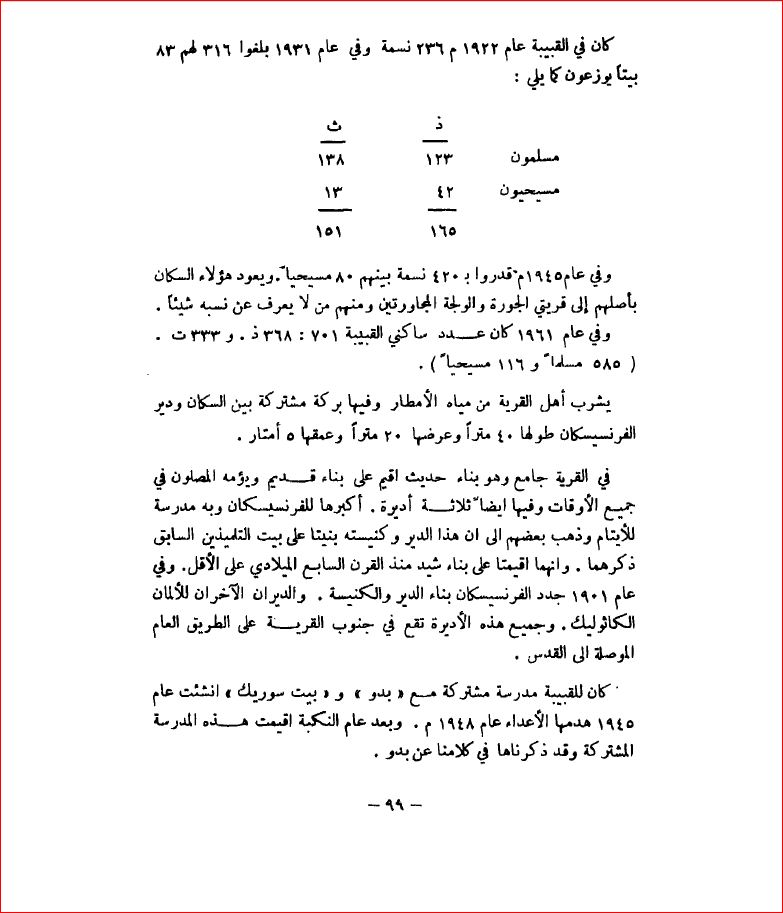 كان في القبيبة عام ١٩٢٢ م ٢٣٦ نسمة وفي عام ١٩٣١ بلغوا ٣١٦ لهم ٨٣
بيتاً يوزعون كما يلي :
ذ ث
مسلمون ١٢٣ ١٣٨
مسيحيون ٤٢ ١٣
١٦٥ ١٥١
وفي عام ١٩٤٥م قدروا بـ ٤٢٠ نسمة بينهم ٨٠ مسيحياً . ويعود هؤلاء السكان
بأصلهم إلى قريتي الجورة والولجة المجاورتين ومنهم من لا يعرف عن نسبه شيئاً .
وفي عام ١٩٦١ كان عــدد ساكني القبيبة ٧٠١ : ٣٦٨ ذ . و ٣٣٣ ث .
( ٥٨٥ مسلماً و ١١٦ مسيحياً ) .
يشرب أهل القرية من مياه الأمطار وفيها بركة مشتركة بين السكان ودير
الفرنسيسكان طولها ٤٠ متراً وعرضها ٢٠ متراً وعمقها ٥ أمتار .
في القرية جامع وهو بناء حديث اقيم على بناء قــديم ويؤمه المصلون في
جميع الأوقات وفيها ايضاً ثلاثــة أديرة . أكبرها للفرنسيسكان وبه مدرسة
للأيتام وذهب بعضهم الى ان هذا الدير وكنيسته بنيتا على بيت التلميذين السابق
ذكرهما . وانهما اقيمتا على بناء شيد منذ القرن السابع الميلادي على الأقل. وفي
عام ١٩٠١ جدد الفرنسيسكان بناء الدير والكنيسة . والديران الآخران للألمان
الكاثوليك . وجميع هذه الأديرة تقع في جنوب القريــة على الطريق العام
الموصلة الى القدس .
كان للقبيبة مدرسة مشتركة مــع « بدو » و « بيت سوريك » انشئت عام
١٩٤٥ هدمها الأعداء عام ١٩٤٨ م . وبعد عام النكبة اقيمت هــذه المدرسة
المشتركة وقد ذكرناها في كلامنا عن بدو .
– ٩٩ –